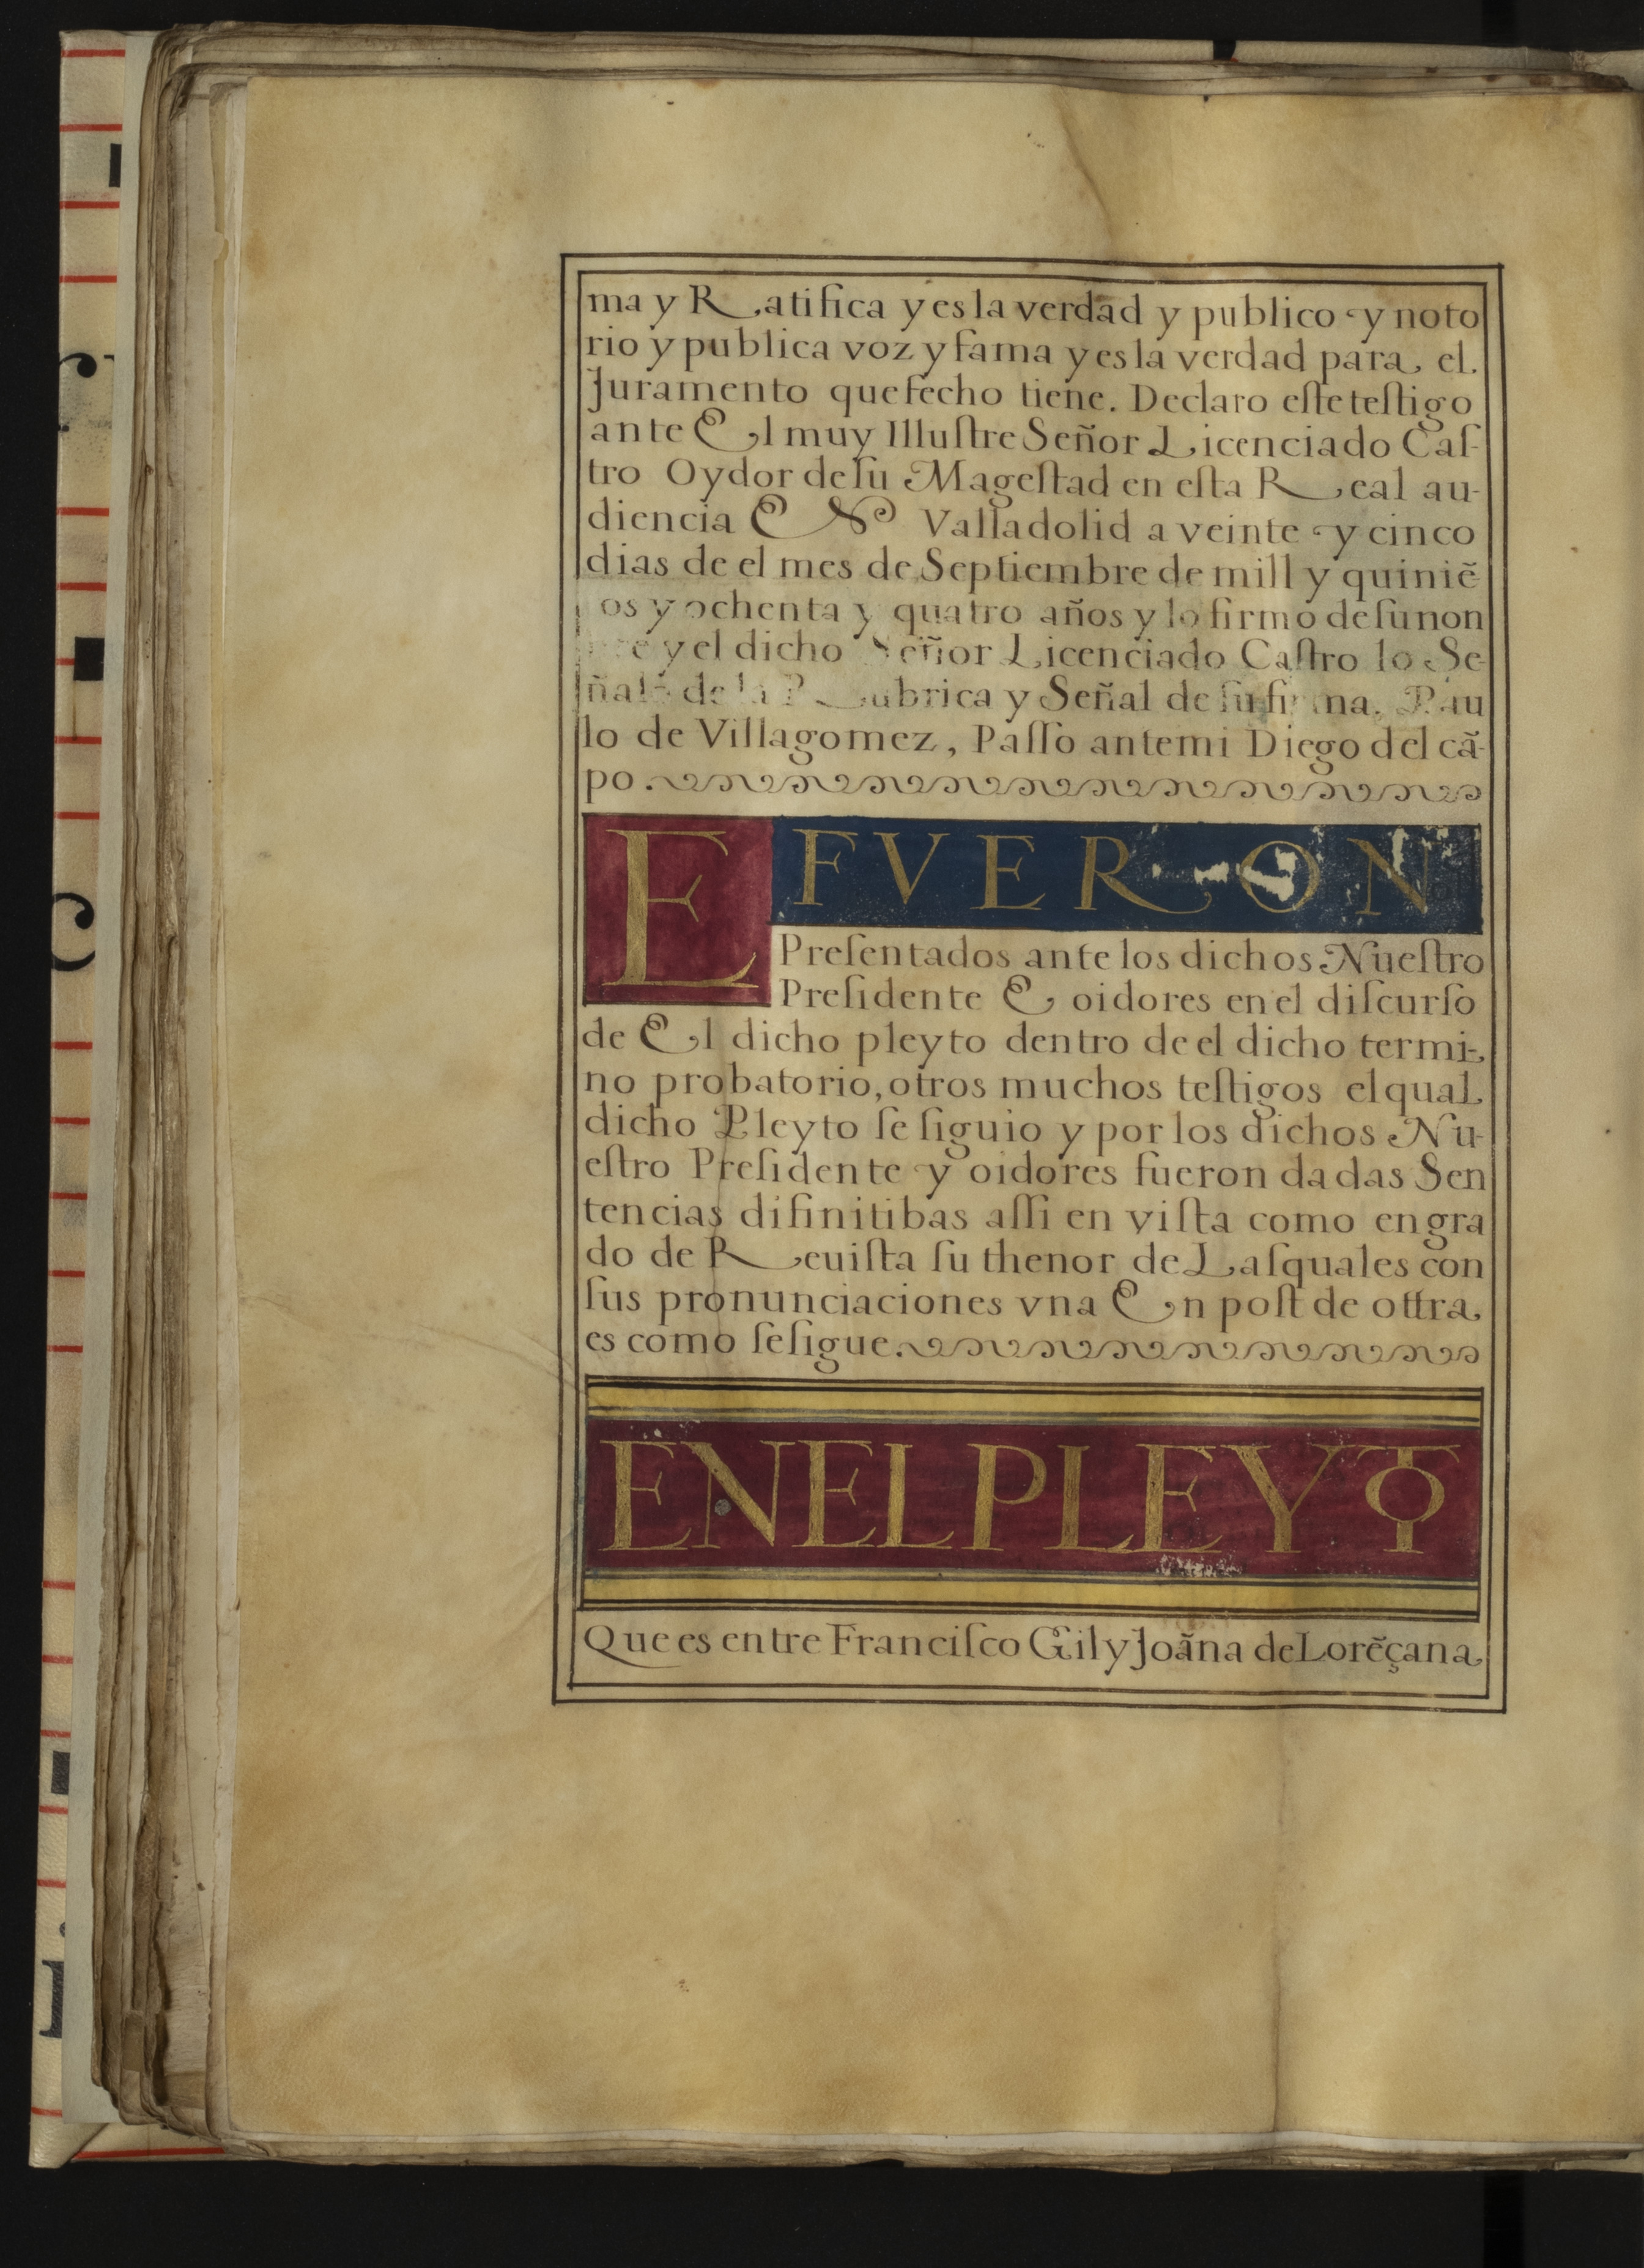 ma y Ratifica y es la verdad y publico y noto
rio y publica voz y fama y es la verdad para el.
Juramento que fecho tiene. Declaro eſte teſtigo
ante El muy Illuſtre Señor Licenciado Caſ-
tro Oydor de ſu Mageſtad en eſta Real au-
diencia EN Valladolid a veinte y cinco
dias de el mes de Septiembre de mill y quiniẽ
os y ochenta y quatro años y lo firmo de ſu non
e y el dicho Señor Licenciado Caſtro lo Se-
ñalo de la Rubrica y Señal de ſu firma. Pau
lo de Villagomez, Paſſo ante mi Diego del cã-
po.
E FVERON
Preſentados ante los dichos Nueſtro
Preſidente E oidores en el diſcurſo
de El dicho pleyto dentro de el dicho termi-
no probatorio, otros muchos teſtigos el qual
dicho Pleyto ſe ſiguio y por los dichos Nu-
eſtro Preſidente y oidores fueron dadas Sen
tencias difinitibas aſſi en viſta como en gra
do de Reuiſta ſu thenor de Laſ quales con
ſus pronunciaciones vna En poſt de ottra
es como ſe ſigue.
EN EL PLEYTO
Que es entre Franciſco Gil y Joãna de Lorẽçana